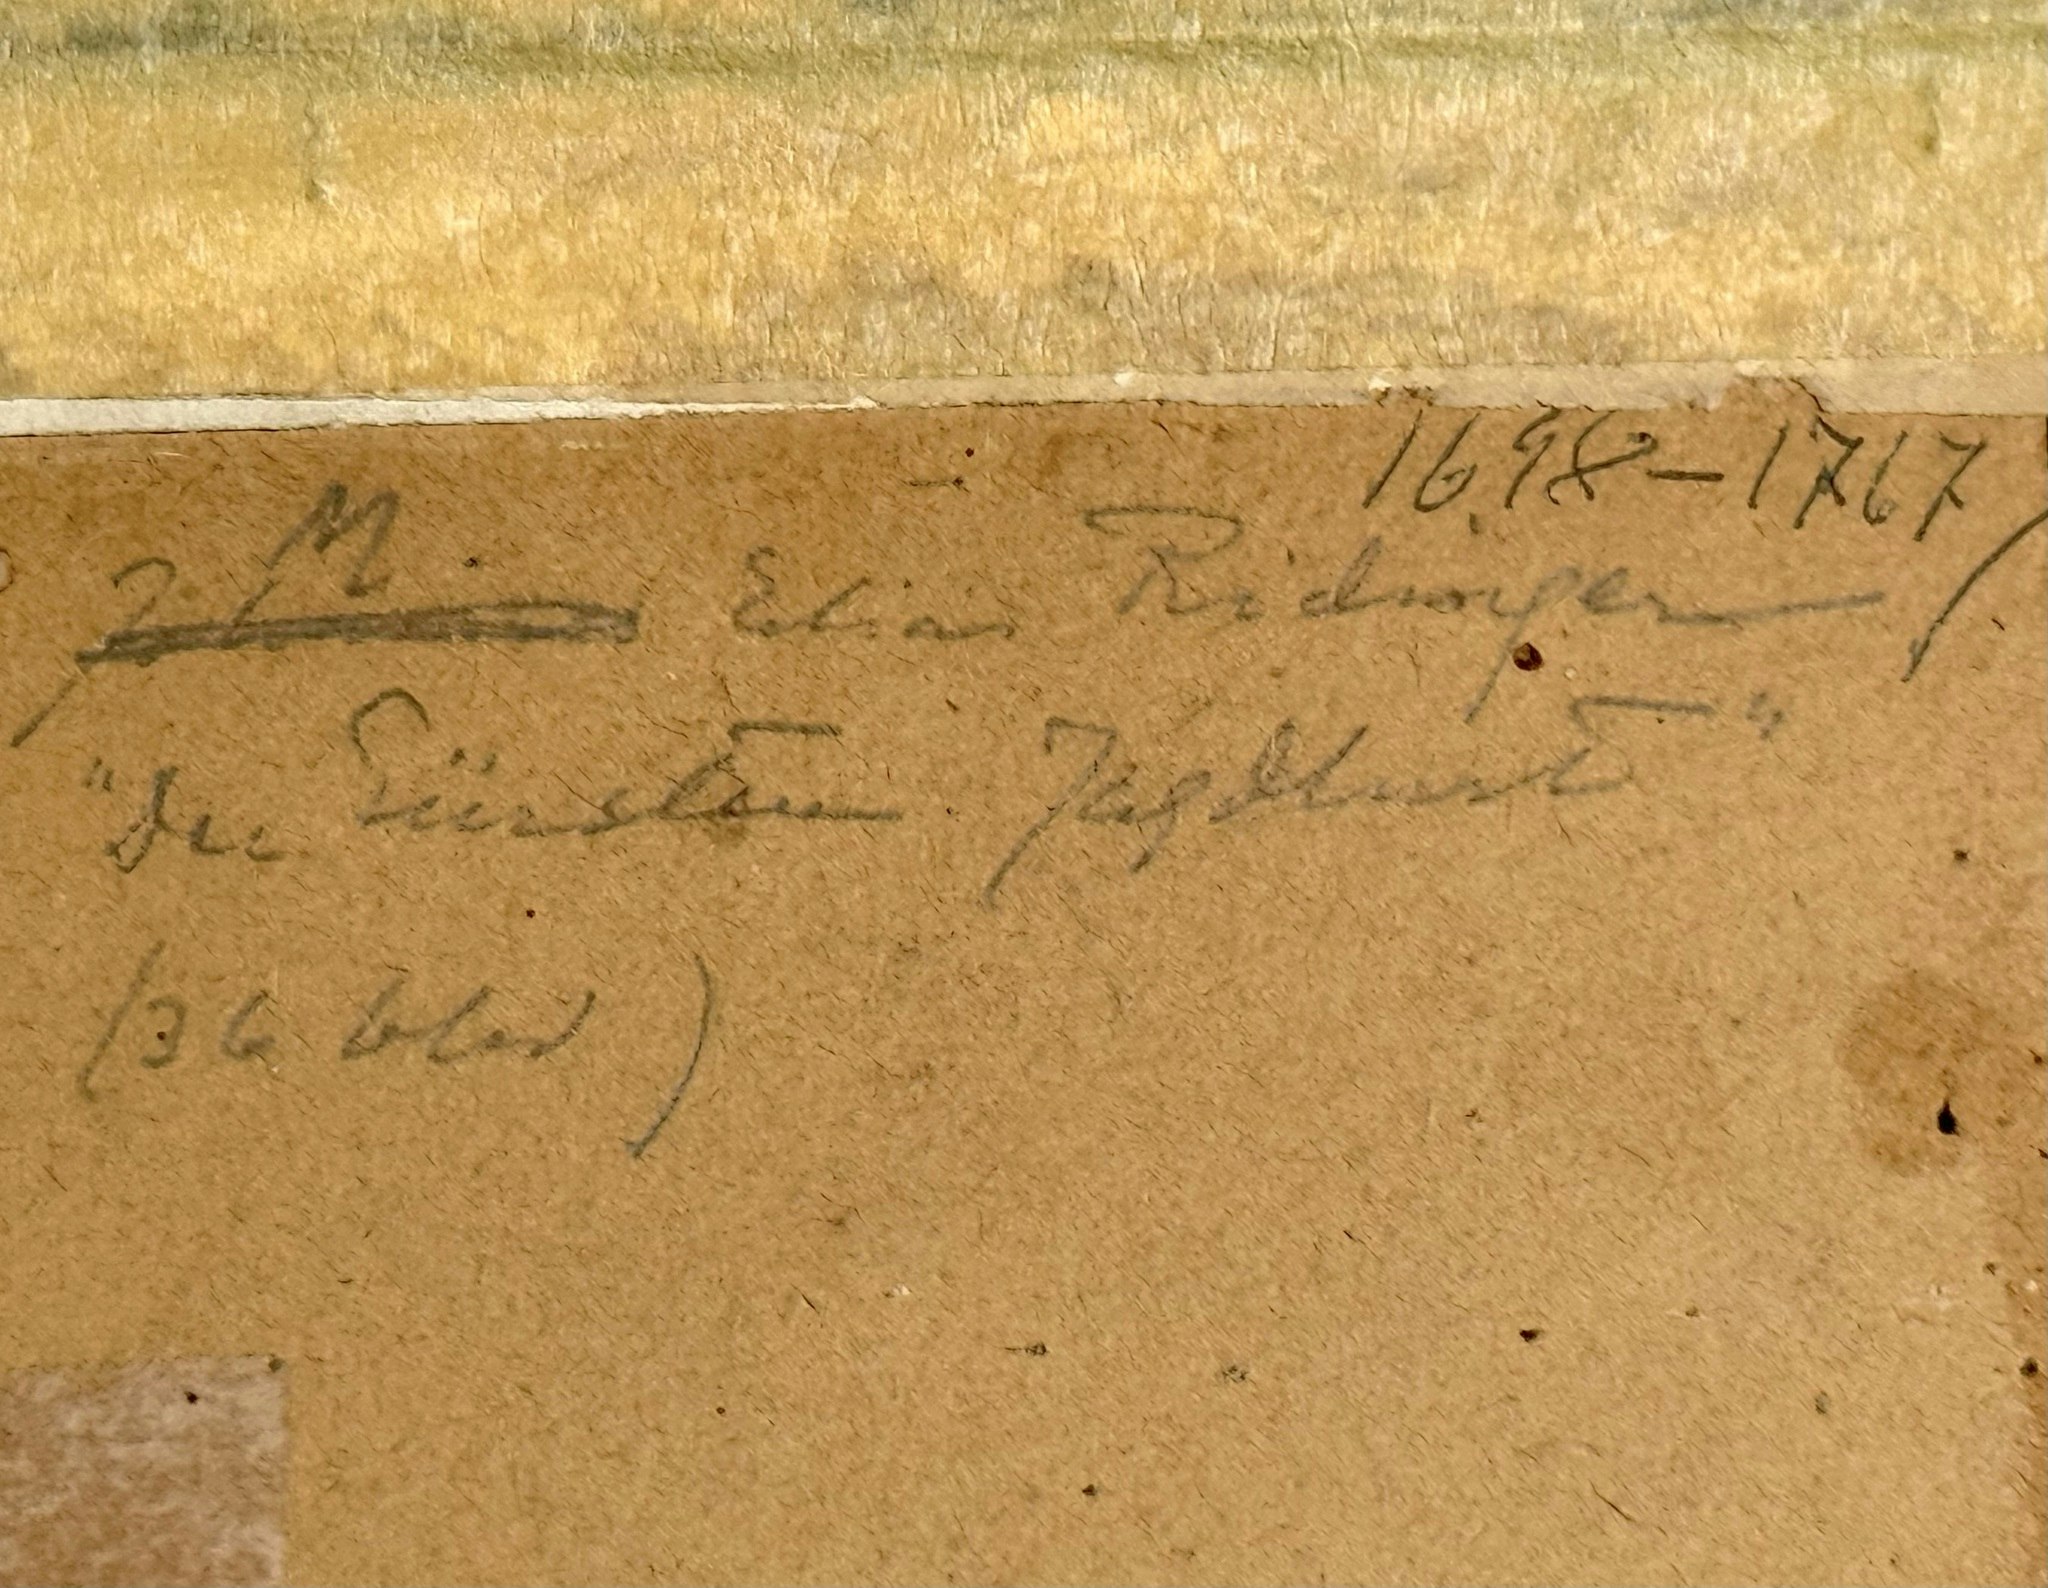 1698–1767)
J. M Elias Ridinger
"Der Fürsten Jagdlust"
(36 blad)